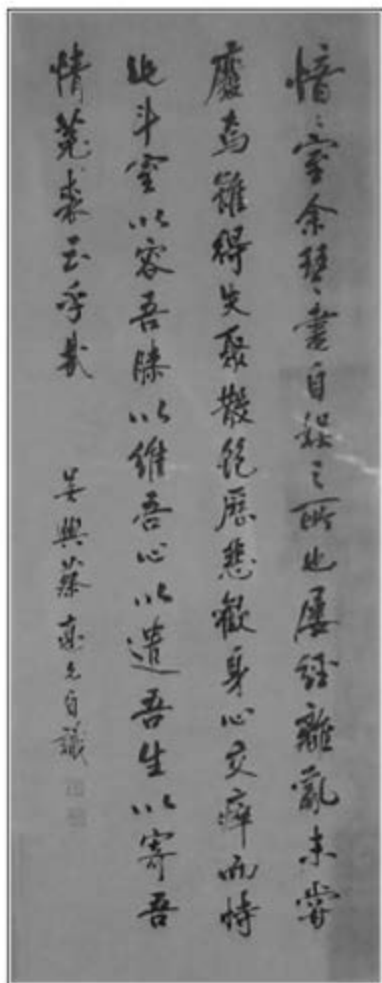 愔〻室余琴書自娛之所也屢經離亂未嘗
廢焉雖得失聚散飽歷悲歡身心交瘁而恃
此斗室以容吾膝以維吾心以遣吾生以寄吾
情菟裘云乎哉
吳興蔡自識